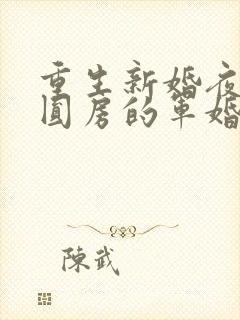 重生新婚夜
圆房的军婚
陳武